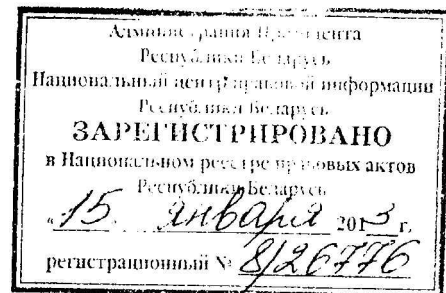 Администрация Президента
Республики Беларусь
Национальный центр правовой информации
Республики Беларусь
ЗАРЕГИСТРИРОВАНО
в Национальном реестре правовых актов
Республики Беларусь
«15» января 2013 г.
регистрационный № 8/26776